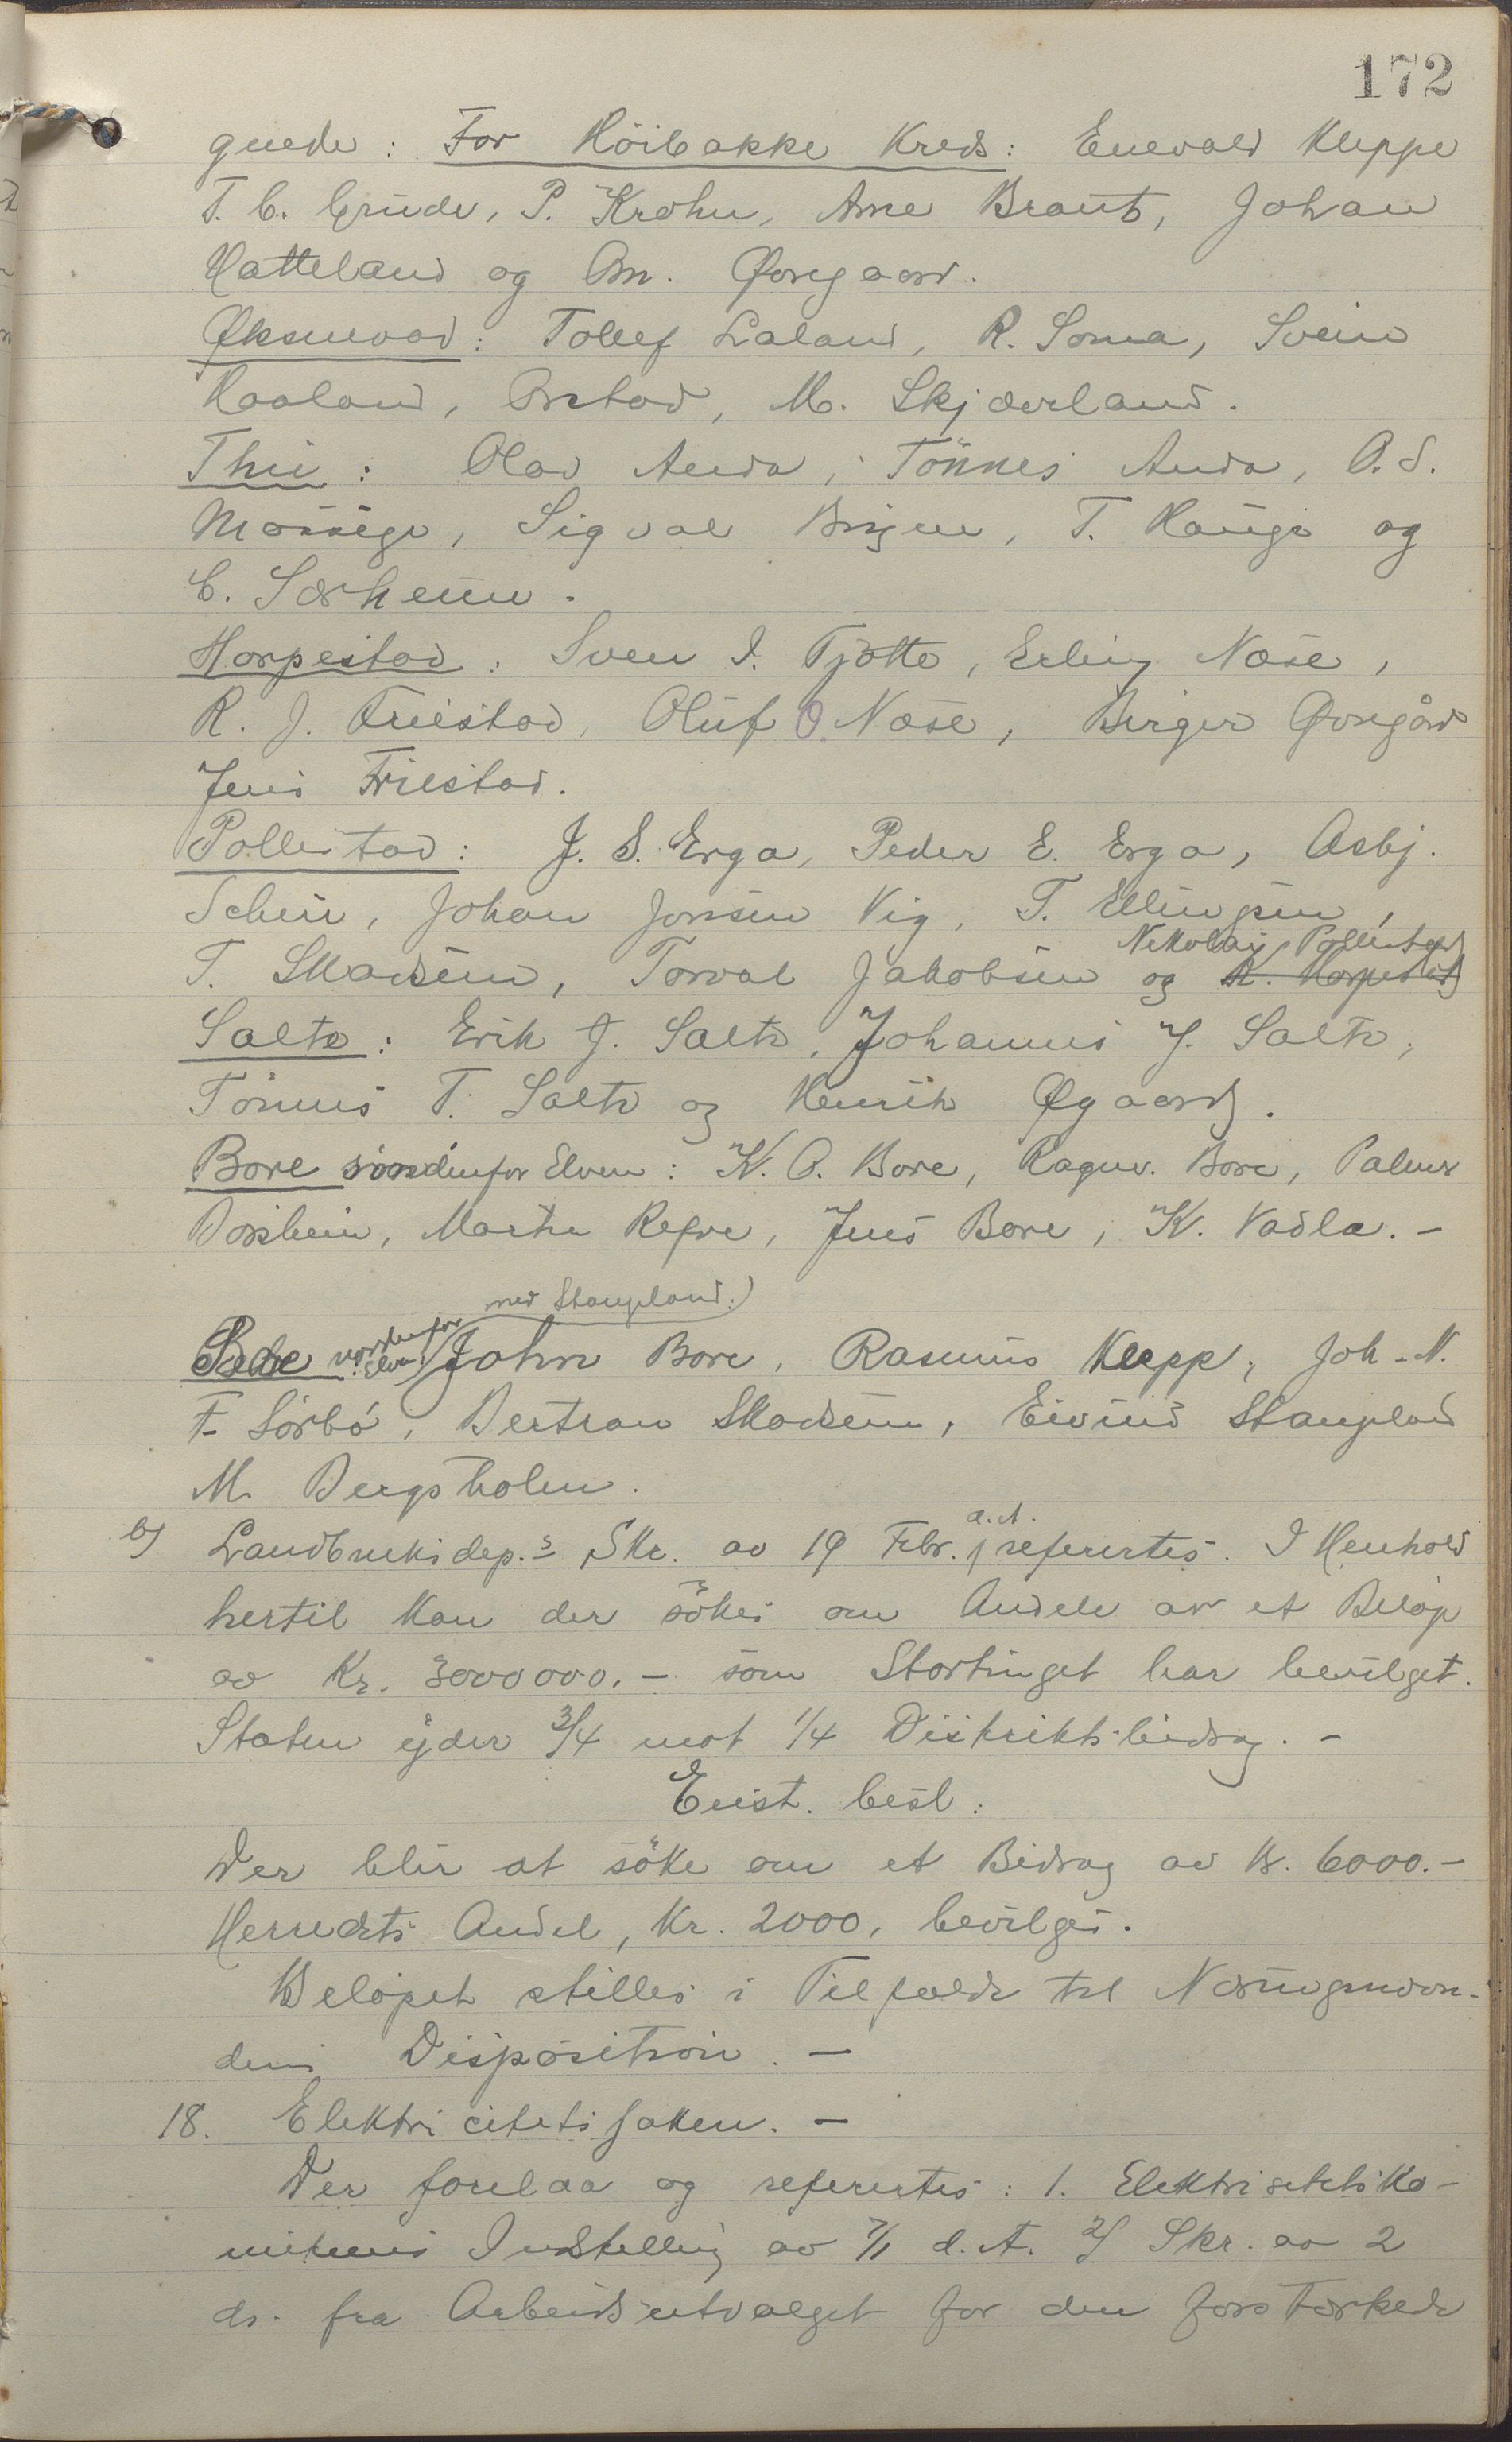 172
gnede: For Höibakke Kreds: Enevald Kleppe
T. C. Grude, P. Krohn, Arne Braut, Johan
Hatteland og Om. Øvregaard.
Øksnevad: Tollef Laland, R. Soma, Svein
Haaland, Orstad, M. Skjæveland.
Thu: Olav Anda, Tönnes Anda, O. S.
Mossige, Sigval Bryne, T. Hauge og
C. Særheim.
Horpestad: Sven I. Tjötte, Erling Næse,
R. J. Friestad, Oluf O. Næse, Birger Øvregård
Jens Friestad.
Pollestad: J. S. Erga, Peder E. Erga, Asbj.
Scheie, Johan Jonsen Vig, T. Ellingsen,
Nikolay Pollestad
T. Skadsem, Torval Jakobsen og K. Horpestad
Salte: Erik J. Salte, Johannes J. Salte,
Tönnes T. Salte og Henrik Øgaard.
Bore söndenfor Elven: K. O. Bore, Ragnv. Bore, Palmer
Orsheim, Martin Refve, Jens Bore, K. Vadla. -
med Stangeland.)
Bore nordenfor Elven: (John Bore, Rasmus Klepp, Joh. N.
F. Sörbö, Bertran Skadsem, Eivind Stangeland
M. Bergsholm.
b) Landbruksdep.s Skr. av 19 Febr. d. A. refertes. I Henhold
hertil kan der sökes om Andele av et Belöp
av Kr. 3000000.- som Stortinget har bevilget.
Staten yder 3/4 mot 1/4 Distriktsbidrag. -
Enst. besl:
Der blir at söke om et Bidrag av Kr. 6000.-
Herredets Andel, Kr. 2000, bevilges.
Belöpet stilles i Tilfælde til Næringsnævn-
dens Disposition. -
18. Elektricitetssaken. -
Der forelaa og refertes: 1. Elektrisitetsko-
miteens Indstilling av 7/1 d. A. 2) Skr. av 2
ds. fra Arbeidsutvalget for den forstærkede